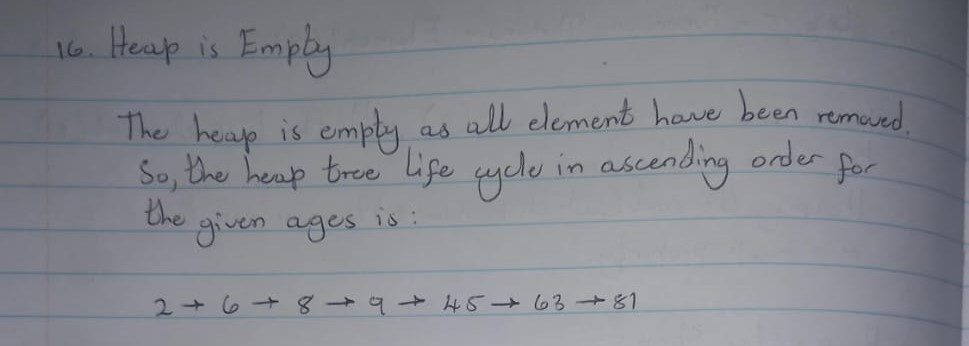 16. Heap is Empty
The heap is empty as all element have been removed.
So, the heap tree life cycle in ascending order for
the given ages is :
2 → 6 → 8 → 9 → 45 → 63 → 81